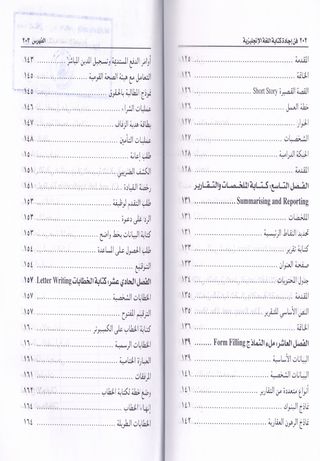 ٢٠٢ فن إجادة كتابة اللغة الإنجليزية
المقدمة ١٢٥
الخاتمة ١٢٦
القصة القصيرة Short Story ١٢٦
خطة العمل ١٢٦
الحوار ١٢٧
الشخصيات ١٢٧
الحبكة الدرامية ١٢٨
المقدمة ١٢٨
الفصل التاسع، كتابة الملخصات والتقارير
Summarising and Reporting ١٣١
الملخصات ١٣١
تحديد النقاط الرئيسية ١٣١
كتابة تقرير ١٣٣
صفحة العنوان ١٣٣
جدول المحتويات ١٣٤
المقدمة ١٣٥
النص الأساسي للتقرير ١٣٥
الخاتمة ١٣٦
الفصل العاشر، ملء النماذج Form Filling ١٣٩
البيانات الأساسية ١٣٩
البيانات الشخصية ١٤١
أنواع متعددة من التقارير ١٤١
نماذج البنوك ١٤١
نماذج الرهون العقارية ١٤٢
الفهرس ٢٠٣
أوامر الدفع المستديمة وتسجيل المدين المباشر ١٤٣
التعامل مع هيئة الصحة القومية ١٤٥
نموذج المطالبة بالحقوق ١٤٥
عمليات الشراء ١٤٦
بطاقة هدية الزفاف ١٤٧
عمليات التأمين ١٤٨
طلب إعانة ١٥٠
الكشف الضريبي ١٥١
رخصة القيادة ١٥١
طلب التقدم لوظيفة ١٥٢
الرد على دعوة ١٥٣
كتابة البيانات بخط واضح ١٥٣
طلب الحصول على المساعدة ١٥٤
التوقيع ١٥٤
الفصل الحادي عشر، كتابة الخطابات Letter Writing ١٥٧
الخطابات الشخصية ١٥٧
الترقيم المفتوح ١٥٧
كتابة الخطاب على الكمبيوتر ١٦٠
الخطابات الرسمية ١٦٠
العبارة الختامية ١٦١
المرفقات ١٦١
وضع خطة لكتابة الخطاب ١٦٢
إنهاء الخطاب ١٦٤
الخطابات الطويلة ١٦٤